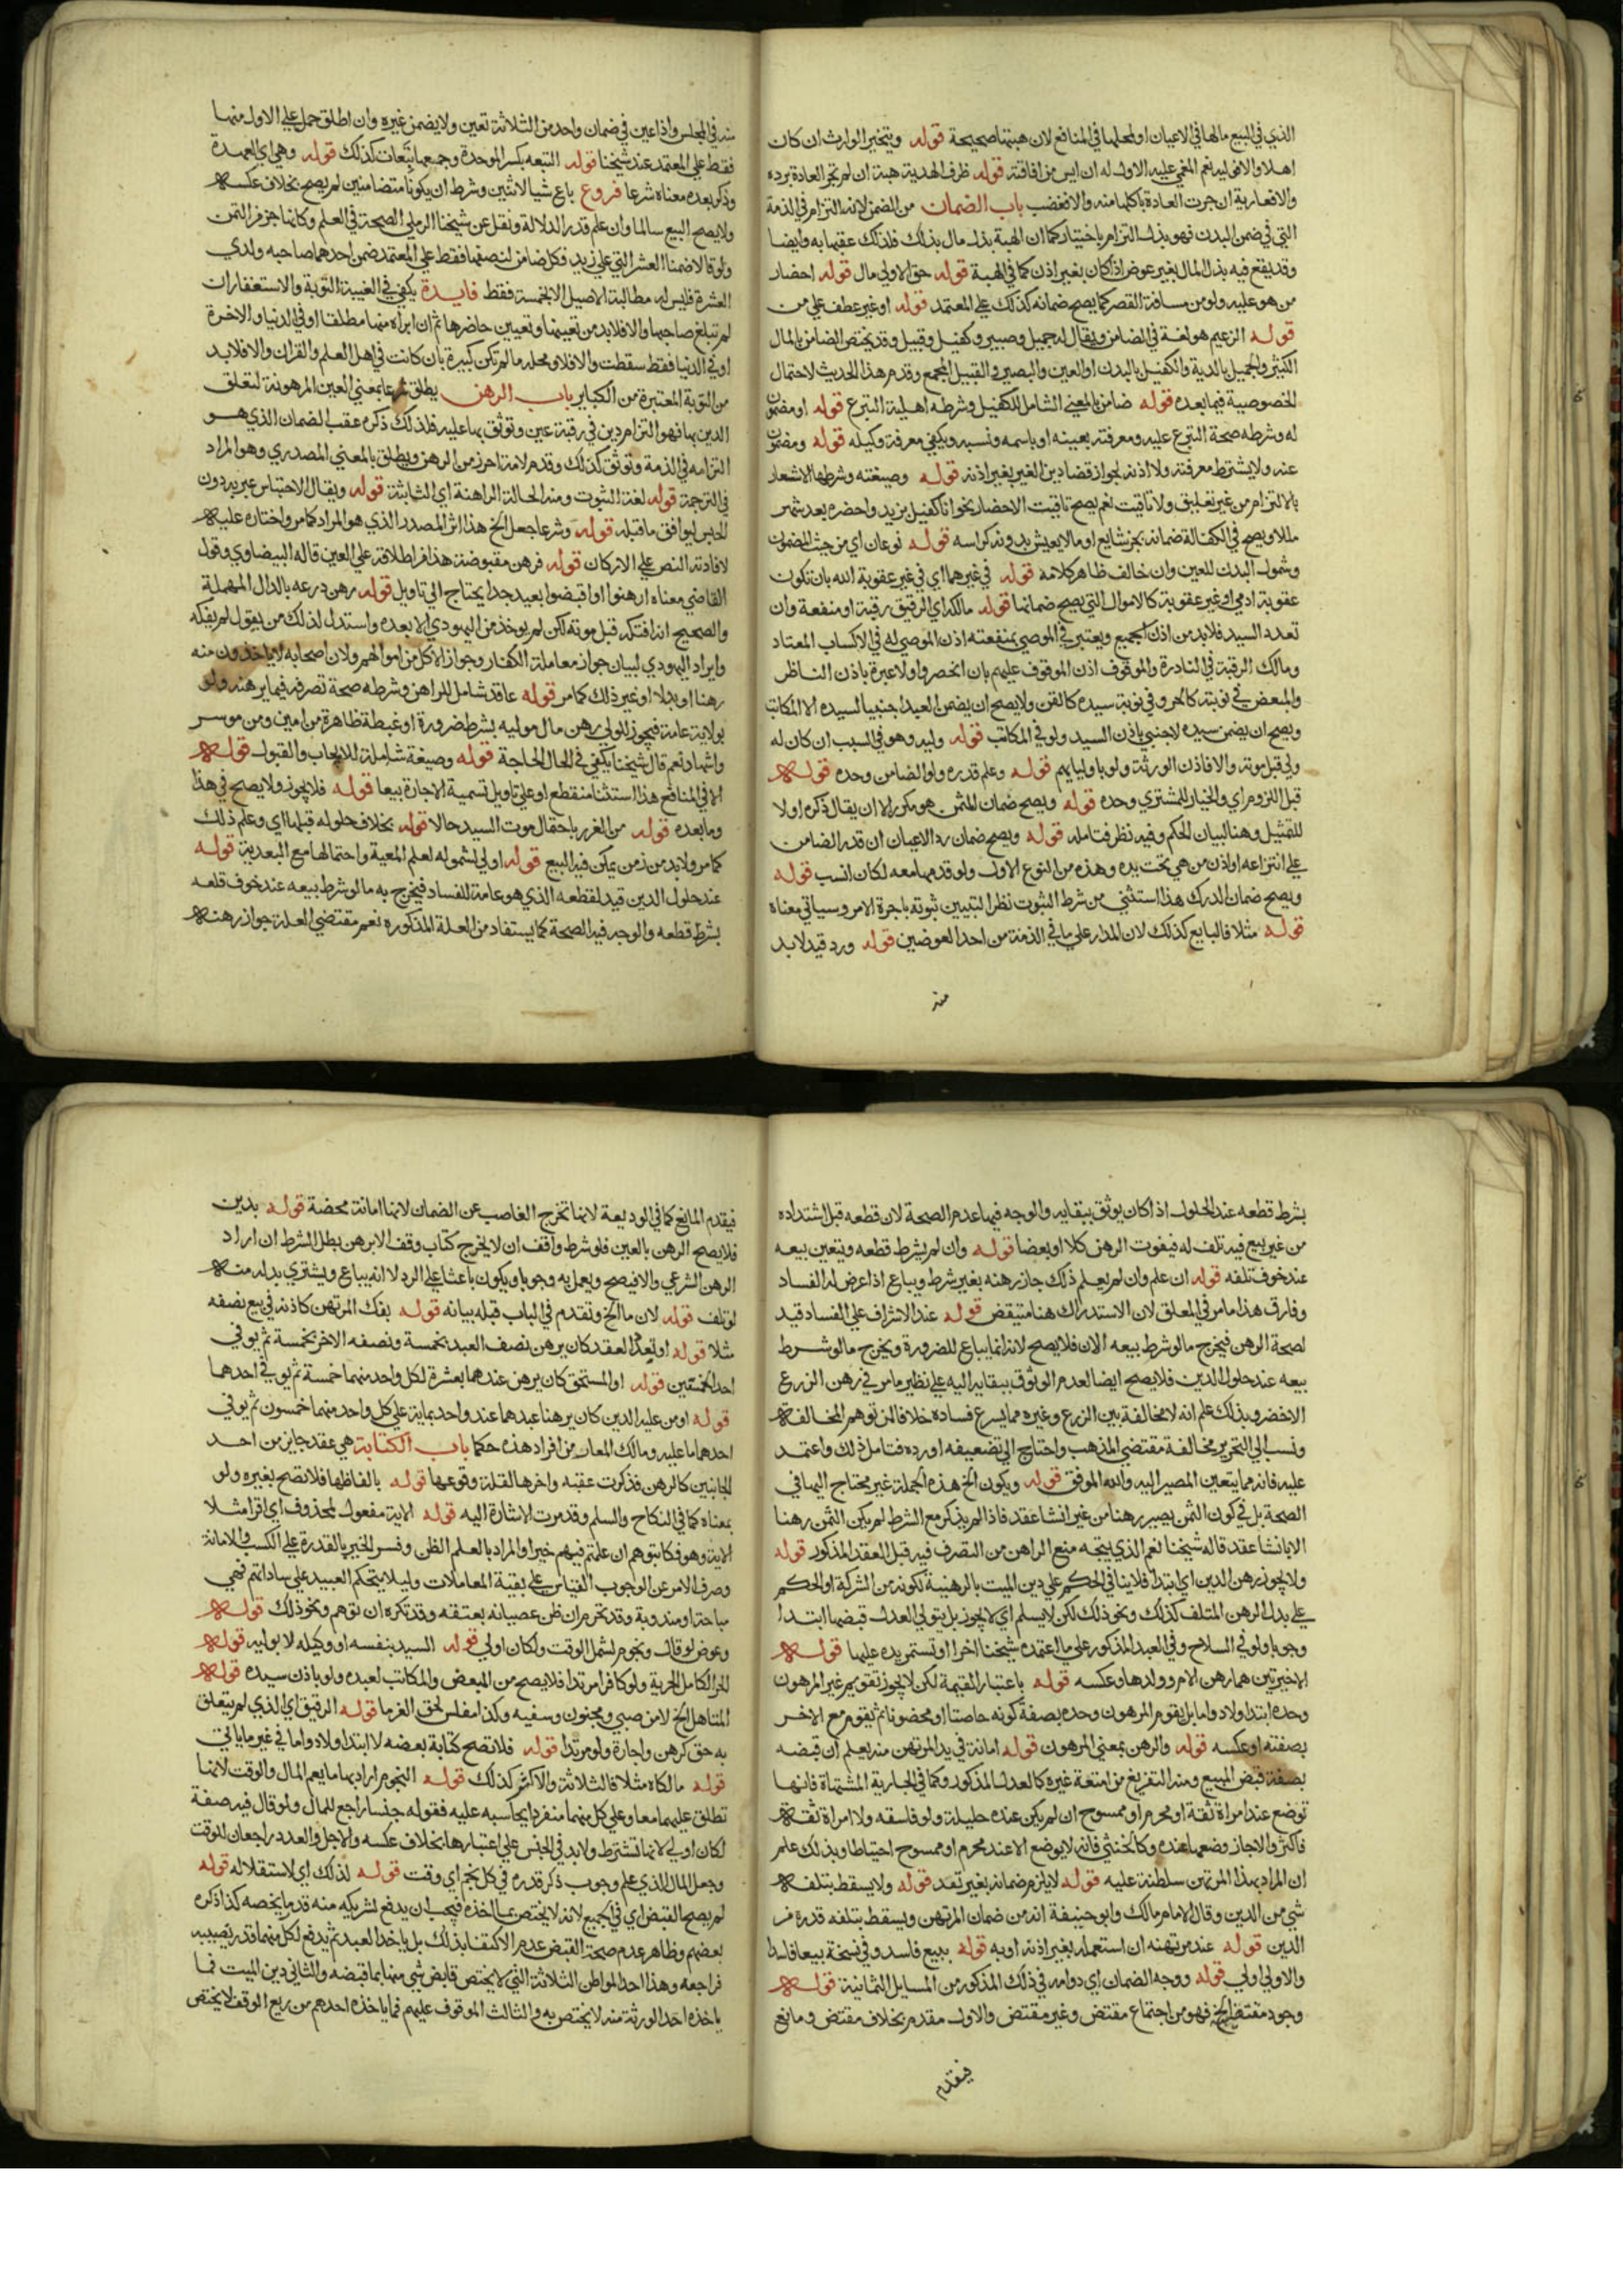 الذي في البيع مالها في الاعيان او لمحلها في المنافع لان هبتها صحيحة قوله ويتخير الوارث ان كان
اهلا والا فوليه نعم المغمي عليه الاولي له ان ايس من افاقته قوله ظرف الهدية هبة ان لم تجر العادة برده
والا فعارية ان جرت العادة باكلها منه والا فغصب باب الضمان من الضمن لانه التزام في الذمة
التي في ضمن البدن فهو بذل التزام باختيار كما ان الهبة بذل مال بذلك فلذلك عقبها به وايضا
وقد يقع فيه بذل المال بغير عوض اذا كان بغير اذن كما في الهبة قوله حق الاولي مال قوله احضار
من هو عليه ولو من مسافة القصر كما يصح ضمانه كذلك علي المعتمد قوله او غير عطف علي من
قوله الزعيم هو لغة في الضامن ويقال له حميل وصبير وكفيل وقبيل وقد يختص الضامن بالمال
الكثير والحميل بالدية والكفيل بالبدن او العين والبصير في القبيل المجمع وقدم هذا الحديث لاحتمال
الخصوصية فيما بعده قوله ضامن بالمعني الشامل للكفيل وشرطه اهلية التبرع قوله او مضمون
له وشرطه صحة التبرع عليه ومعرفته بعينه او باسمه ونسبه ويكفي معرفة وكيله قوله ومضمون
عنه ولا يشترط معرفته ولا اذنه لجواز قضا دين الغير بغير اذنه قوله وصيغته وشرطها الاشعار
بالالتزام من غير تعليق ولا تاقيت نعم يصح تاقيت الاحضار بنحو انا كفيل بزيد واحضره بعد شهر
مثلا ويصح في الكفالة ضمانه بجزء شايع او ما لا يعيش بدونه كراسه قوله نوعان اي من حيث المضمون
وشمول البدن للعين وان خالف ظاهر كلامه قوله في غيرهما اي في غير عقوبة الله بان تكون
عقوبة ادمي او غير عقوبة كالاموال التي يصح ضمانها قوله مالكه اي الرقيق رقبة او منفعة وان
تعدد السيد فلا بد من اذن الجميع ويعتبر في الموصي بمنفعته اذن الموصي له في الاكساب المعتاد
ومالك الرقبة في النادرة والموقوف اذن الموقوف عليهم بان انحصروا ولا عبرة باذن الناظر
والمبعض في نوبته كالحر وفي نوبة سيده كالقن ولا يصح ان يضمن العبد اجنبيا لسيده الا المكاتب
ويصح ان يضمن سيده لاجنبي باذن السيد ولو في المكاتب قوله وليه وهو في السبب ان كان له
ولي قبل موته والا فاذن الورثة ولو باوليايهم قوله وعلم قدره ولو الضامن وحده قوله
قبل اللزوم اي والخيار للمشتري وحده قوله ويصح ضمان المثمن هو مكرر الا ان يقال ذكره اولا
للتمثيل وهنا لبيان الحكم وفيه نظر فتامله قوله ويصح ضمان رد الاعيان ان قدر الضامن
علي انتزاعه او اذن من هي تحت يده وهذه من النوع الاول ولو قدمها معه لكان انسب قوله
ويصح ضمان الدرك هذا استثني من شرط الثبوت نظرا لتبيين ثبوته باجرة الامر وسياتي معناه
قوله مثلا فالبايع كذلك لان المدار علي ما في الذمة من احد العوضين قوله ورد قيد لا بد
منه
منه في المجلس واذا عين في ضمان واحد من الثلاثة تعين ولا يضمن غيره وان اطلق حمل علي الاول منها
فقط علي المعتمد عند شيخنا قوله التبعه بكسر الموحدة وجمعها تبعات كذلك قوله وهي اي العهدة
وذكر بعده معناه شرعا فروع باع شيا لاثنين وشرط ان يكونا متضامنين لم يصح بخلاف عكسه
ولا يصح البيع سالما وان علم قدر الدلالة ونقل عن شيخنا الرملي الصحة في العلم وكانها جزء من الثمن
ولو قالا ضمنا العشر التي علي زيد فكل ضامن لنصفها فقط علي المعتمد ضمن احدهما صاحبه ولمدي
العشرة فليس له مطالبة الاصيل الا بخمسة فقط فايدة يكفي في الغيبة التوبة والاستغفار ان
لم تبلغ صاحبها والا فلا بد من تعيينها وتعيين حاضرها ثم ان ابراه منها مطلقا او في الدنيا والاخرة
او في الدنيا فقط سقطت والا فلا ومحله ما لم تكن كبيرة بان كانت في اهل العلم والقران والا فلا بد
من التوبة المعتبرة من الكباير باب الرهن يطلق شرعا بمعني العين المرهونة لتعلق
الدين بها فهو التزام دين في رقبة عين وتوثق بها عليه فلذلك ذكره عقب الضمان الذي هو
التزامه في الذمة وتوثق كذلك وقدم لامة احرز من الرهن ويطلق بالمعني المصدري وهو المراد
في الترجمة قوله لغة الثبوت ومنه الحالة الراهنة اي الثابتة قوله ويقال الاحتباس عبر به دون
الحبس ليوافق ما قبله قوله وشرعا جعل الخ هذا اثر المصدر الذي هو المراد كما مر واختاره عليه
لافادته النص علي الاركان قوله فرهن مقبوضة هذا من اطلاقه علي العين قاله البيضاوي وقول
القاضي معناه ارهنوا او اقبضوا بعيد جدا يحتاج الي تاويل قوله رهن درعه بالدال المهملة
والصحيح انه افتكه قبل موته لكن لم يوخذ من اليهودي الا بعده واستدل لذلك من يقول لم يفكه
وايراد اليهودي لبيان جواز معاملة الكفار وجواز الاكل من اموالهم ولان اصحابه لا ياخذون منه
رهنا او بدلا او غير ذلك كما مر قوله عاقد شامل للراهن وشرطه صحة تصرفه فيما يرهنه ولو
بولاية عامة فيجوز للولي رهن مال موليه بشرط ضرورة او غبطة ظاهرة من امين ومن موسر
واشهاد نعم قال شيخنا يكفي في الحال الحاجة قوله وصيغة شاملة للايجاب والقبول قوله
الا في المنافع هذا استثنا منقطع او علي تاويل تسمية الاجارة بيعا قوله فلا يجوز ولا يصح في هذا
وما بعده قوله من الغرر باحتمال موت السيد حالا قوله بخلاف حلوله قبلها اي وعلم ذلك
كما مر ولا بد من زمن يمكن فيه البيع قوله اولي لشموله لعلم المعية واحتمالها مع البعدية قوله
عند حلول الدين قيد لقطعه الذي هو عامة للفساد فيخرج به ما لو شرط بيعه عند خوف قلعه
بشرط قطعه والوجه فيه الصحة كما يستفاد من العلة المذكورة نعم مقتضي العلة جواز رهنه
بشرط قطعه عند الحلول اذا كان يوثق ببقايه والوجه فيها عدم الصحة لان قطعه قبل اشتداده
من غير بيع فيه تلف له فيفوت الرهن كلا او بعضا قوله وان لم يشرط قطعه ويتعين بيعه
عند خوف تلفه قوله ان علم وان لم يعلم ذلك جاز رهنه بغير شرط ويباع اذا عرض له الفساد
وفارق هذا ما مر في المعلق لان الاستدراك هنا متيقض قوله عند الاشراف علي الفساد قيد
لصحة الرهن فيخرج ما لو شرط بيعه الان فلا يصح لانه انما يباع للضرورة ويخرج ما لو شرط
بيعه عند حلول الدين فلا يصح ايضا لعدم الوثوق ببقايه اليه علي نظير ما مر في رهن الزرع
الاخضر وبذلك علم انه لا مخالفة بين الزرع وغيره مما يسرع فساده خلافا لمن توهم المخالفة
ونسب الي التحرير مخالفة مقتضي المذهب واحتاج الي تضعيفه او رده فتامل ذلك واعتمد
عليه فانه مما يتعين المصير اليه والله الموفق قوله ويكون الخ هذه الجملة غير محتاج اليها في
الصحة بل في كون الثمن يصير رهنا من غير انشا عقد فاذا لم يذكر مع الشرط لم يكن الثمن رهنا
الا بانشا عقد قاله شيخنا نعم الذي يتجه منع الراهن من التصرف فيه قبل العقد المذكور قوله
ولا يجوز رهن الدين اي ابتدا فلا ينافي الحكم علي دين الميت بالرهنية لكونه من التركة او الحكم
علي بدل الرهن المتلف كذلك ونحو ذلك لكن لا يسلم اي لا يجوز بل يتولي العدل قبضها ابتدا
وجوبا ولو في السلاح وفي العبد المذكور علي ما اعتمده شيخنا اخرا او تستمر يده عليها قوله
الاخيرتين هما رهن الام وولدها وعكسه قوله باعتبار القيمة لكن لا يجوز تقويم غير المرهون
وحده ابتدا ولا دواما بل يقوم المرهون وحده بصفة كونه حاضنا او محضونا ثم يقوم مع الاخر
بصفته او عكسه قوله والرهن بمعني المرهون قوله امانة في يد المرتهن منه يعلم ان قبضه
بصفة قبض المبيع ومنه التفريغ من امتعة غيره كالعدل المذكور وكما في الجارية المشتهاة فانها
توضع عند امراة ثقة او محرم او ممسوح ان لم يكن عنده حليلة ولو فاسقة ولا امراة ثقة
فاكثر والا جاز وضعها عنده وكالخنثي فانه لا يوضع الا عند محرم او ممسوح احتياطا وبذلك علم
ان المراد بهذا المرتهن سلطنة عليه قوله لا يلزم ضمانه بغير تعد قوله ولا يسقط بتلفه
شي من الدين وقال الامام مالك وابو حنيفة انه من ضمان المرتهن ويسقط بتلفه قدره من
الدين قوله عند مرتهنه ان استعمله بغير اذنه او به قوله ببيع فاسد وفي نسخة بيعا فاسدا
والاولي اولي قوله ووجه الضمان اي دوامه في ذلك المذكور من المسايل الثمانية قوله
وجود مقتض الخ فهو من اجتماع مقتض وغير مقتض والاول مقدم بخلاف مقتض ومانع
فيقدم
فيقدم المانع كما في الوديعة لانها تخرج الغاصب عن الضمان لانها امانة محضة قوله بدين
فلا يصح الرهن بالعين فلو شرط واقف ان لا يخرج كتاب وقف الا برهن بطل الشرط ان اراد
الرهن الشرعي والا فيصح ويعمل به وجوبا ويكون باعثا علي الرد لا انه يباع ويشتري بدله منه
لو تلف قوله لان ما الخ وتقدم في الباب قبله بيانه قوله بفك المرتهن كاذنه في بيع نصفه
مثلا قوله او تعدد العقد كان يرهن نصف العبد بخمسة ونصفه الاخر بخمسة ثم يوفي
احد الخمستين قوله او المستحق كان يرهن عندهما بعشرة لكل واحد منهما خمسة ثم يوفي احدهما
قوله او من عليه الدين كان يرهنا عبدهما عند واحد بماية علي كل واحد منهما خمسون ثم يوفي
احدهما ما عليه ومالك المعار من افراد هذه حكما باب الكتابة هي عقد جايز من احد
الجانبين كالرهن فذكرت عقبه واخرها لقلة وقوعها قوله بالفاظها فلا تصح بغيره ولو
بمعناه كما في النكاح والسلم وقد مرت الاشارة اليه قوله الاية مفعول لمحذوف اي اقرا مثلا
الاية وهو فكاتبوهم ان علمتم فيهم خيرا والمراد بالعلم الظن وفسر الخير بالقدرة علي الكسب والامانة
وصرف الامر عن الوجوب القياس علي بقية المعاملات وليلا يتحكم العبيد علي ساداتهم فهي
مباحة او مندوبة وقد تحرم ان ظن عصيانه بعتقه وقد تكره ان توهم ونحو ذلك قوله
وعوض لو قال ونجوم لشمل الوقت ولكان اولي قوله السيد بنفسه او وكيله لا بوليه قوله
الحر الكامل الحرية ولو كافرا مرتدا فلا يصح من المبعض والمكاتب لعبده ولو باذن سيده قوله
المتاهل الخ لا من صبي ومجنون وسفيه وكذا مفلس لحق الغرما قوله الرقيق اي الذي لم يتعلق
به حق كرهن واجارة ولو مرتدا قوله فلا تصح كتابة بعضه لا ابتدا ولا دواما في غير ما ياتي
قوله مالكاه مثلا فالثلاثة والاكثر كذلك قوله النجوم اراد بها ما يعم المال والوقت لانها
تطلق عليهما معا وعلي كل منهما منفردا بحاسبه عليه فقوله جنسا راجع للمال ولو قال فيه صفة
لكان اولي لانها تشترط ولا بد في الجنس علي اعتبارها بخلاف عكسه والاجل والعدد راجعان للوقت
وجعل المال للذي علم وجوب ذكر قدره في كل نجم اي وقت قوله لذلك اي لاستقلاله قوله
لم يصح القبض اي في الجميع لانه لا يختص بما اخذه فيجب ان يدفع لشريكه منه قدر ما يخصه كذا ذكره
بعضهم وظاهر عدم صحة القبض عدم الاكتفا بذلك بل ياخذ العبد ثم يدفع لكل منهما قدر نصيبه
فراجعه وهذا احد المواطن الثلاثة التي لا يختص قابض شي منها بما قبضه والثاني دين الميت فما
ياخذه احد الورثة منه لا يختص به والثالث الموقوف عليهم فما ياخذه احدهم من ريع الوقف لا يختص